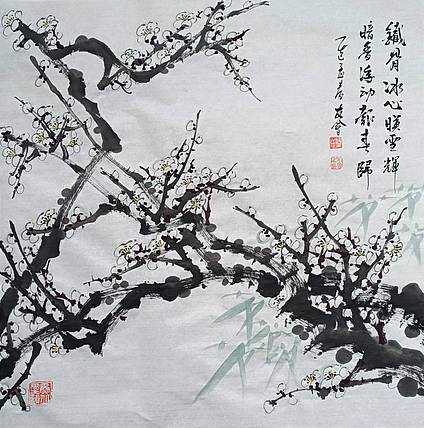 鐵骨冰心映雪輝
暗香浮動報春歸
乙巳